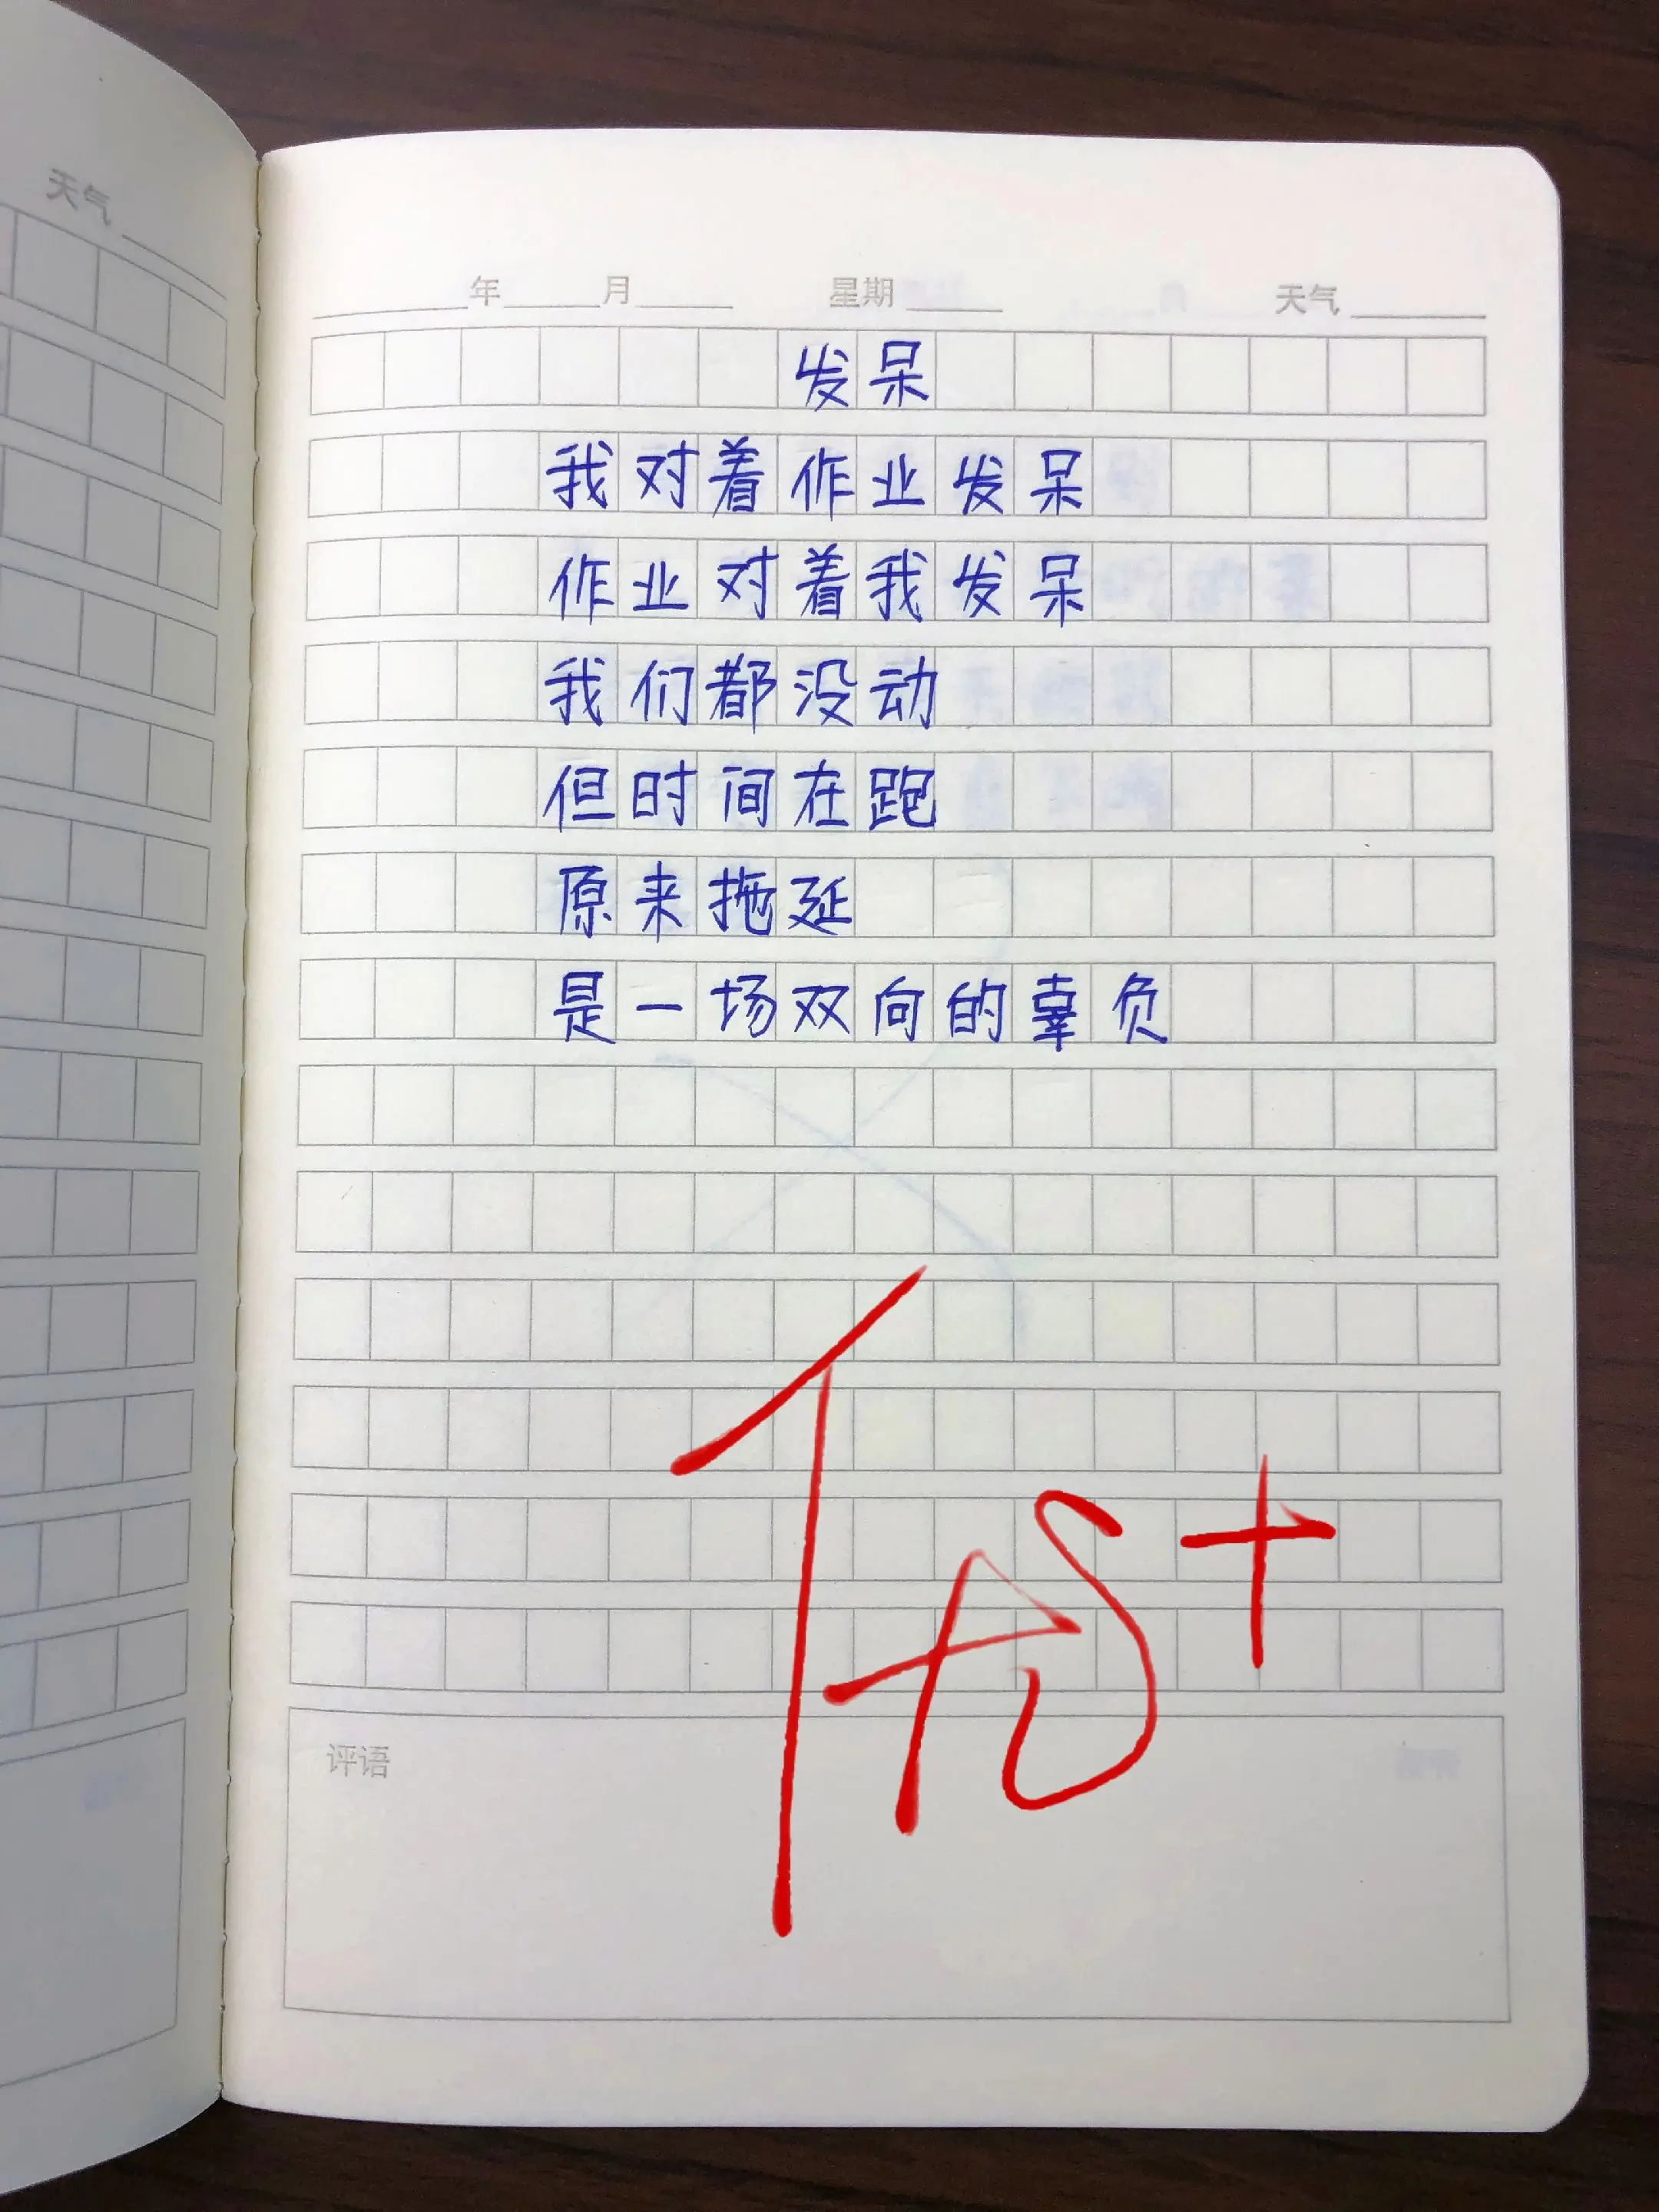 天气
年 月 星期 天气
发呆
我对着作业发呆
作业对着我发呆
我们都没动
但时间在跑
原来拖延
是一场双向的辜负
评语